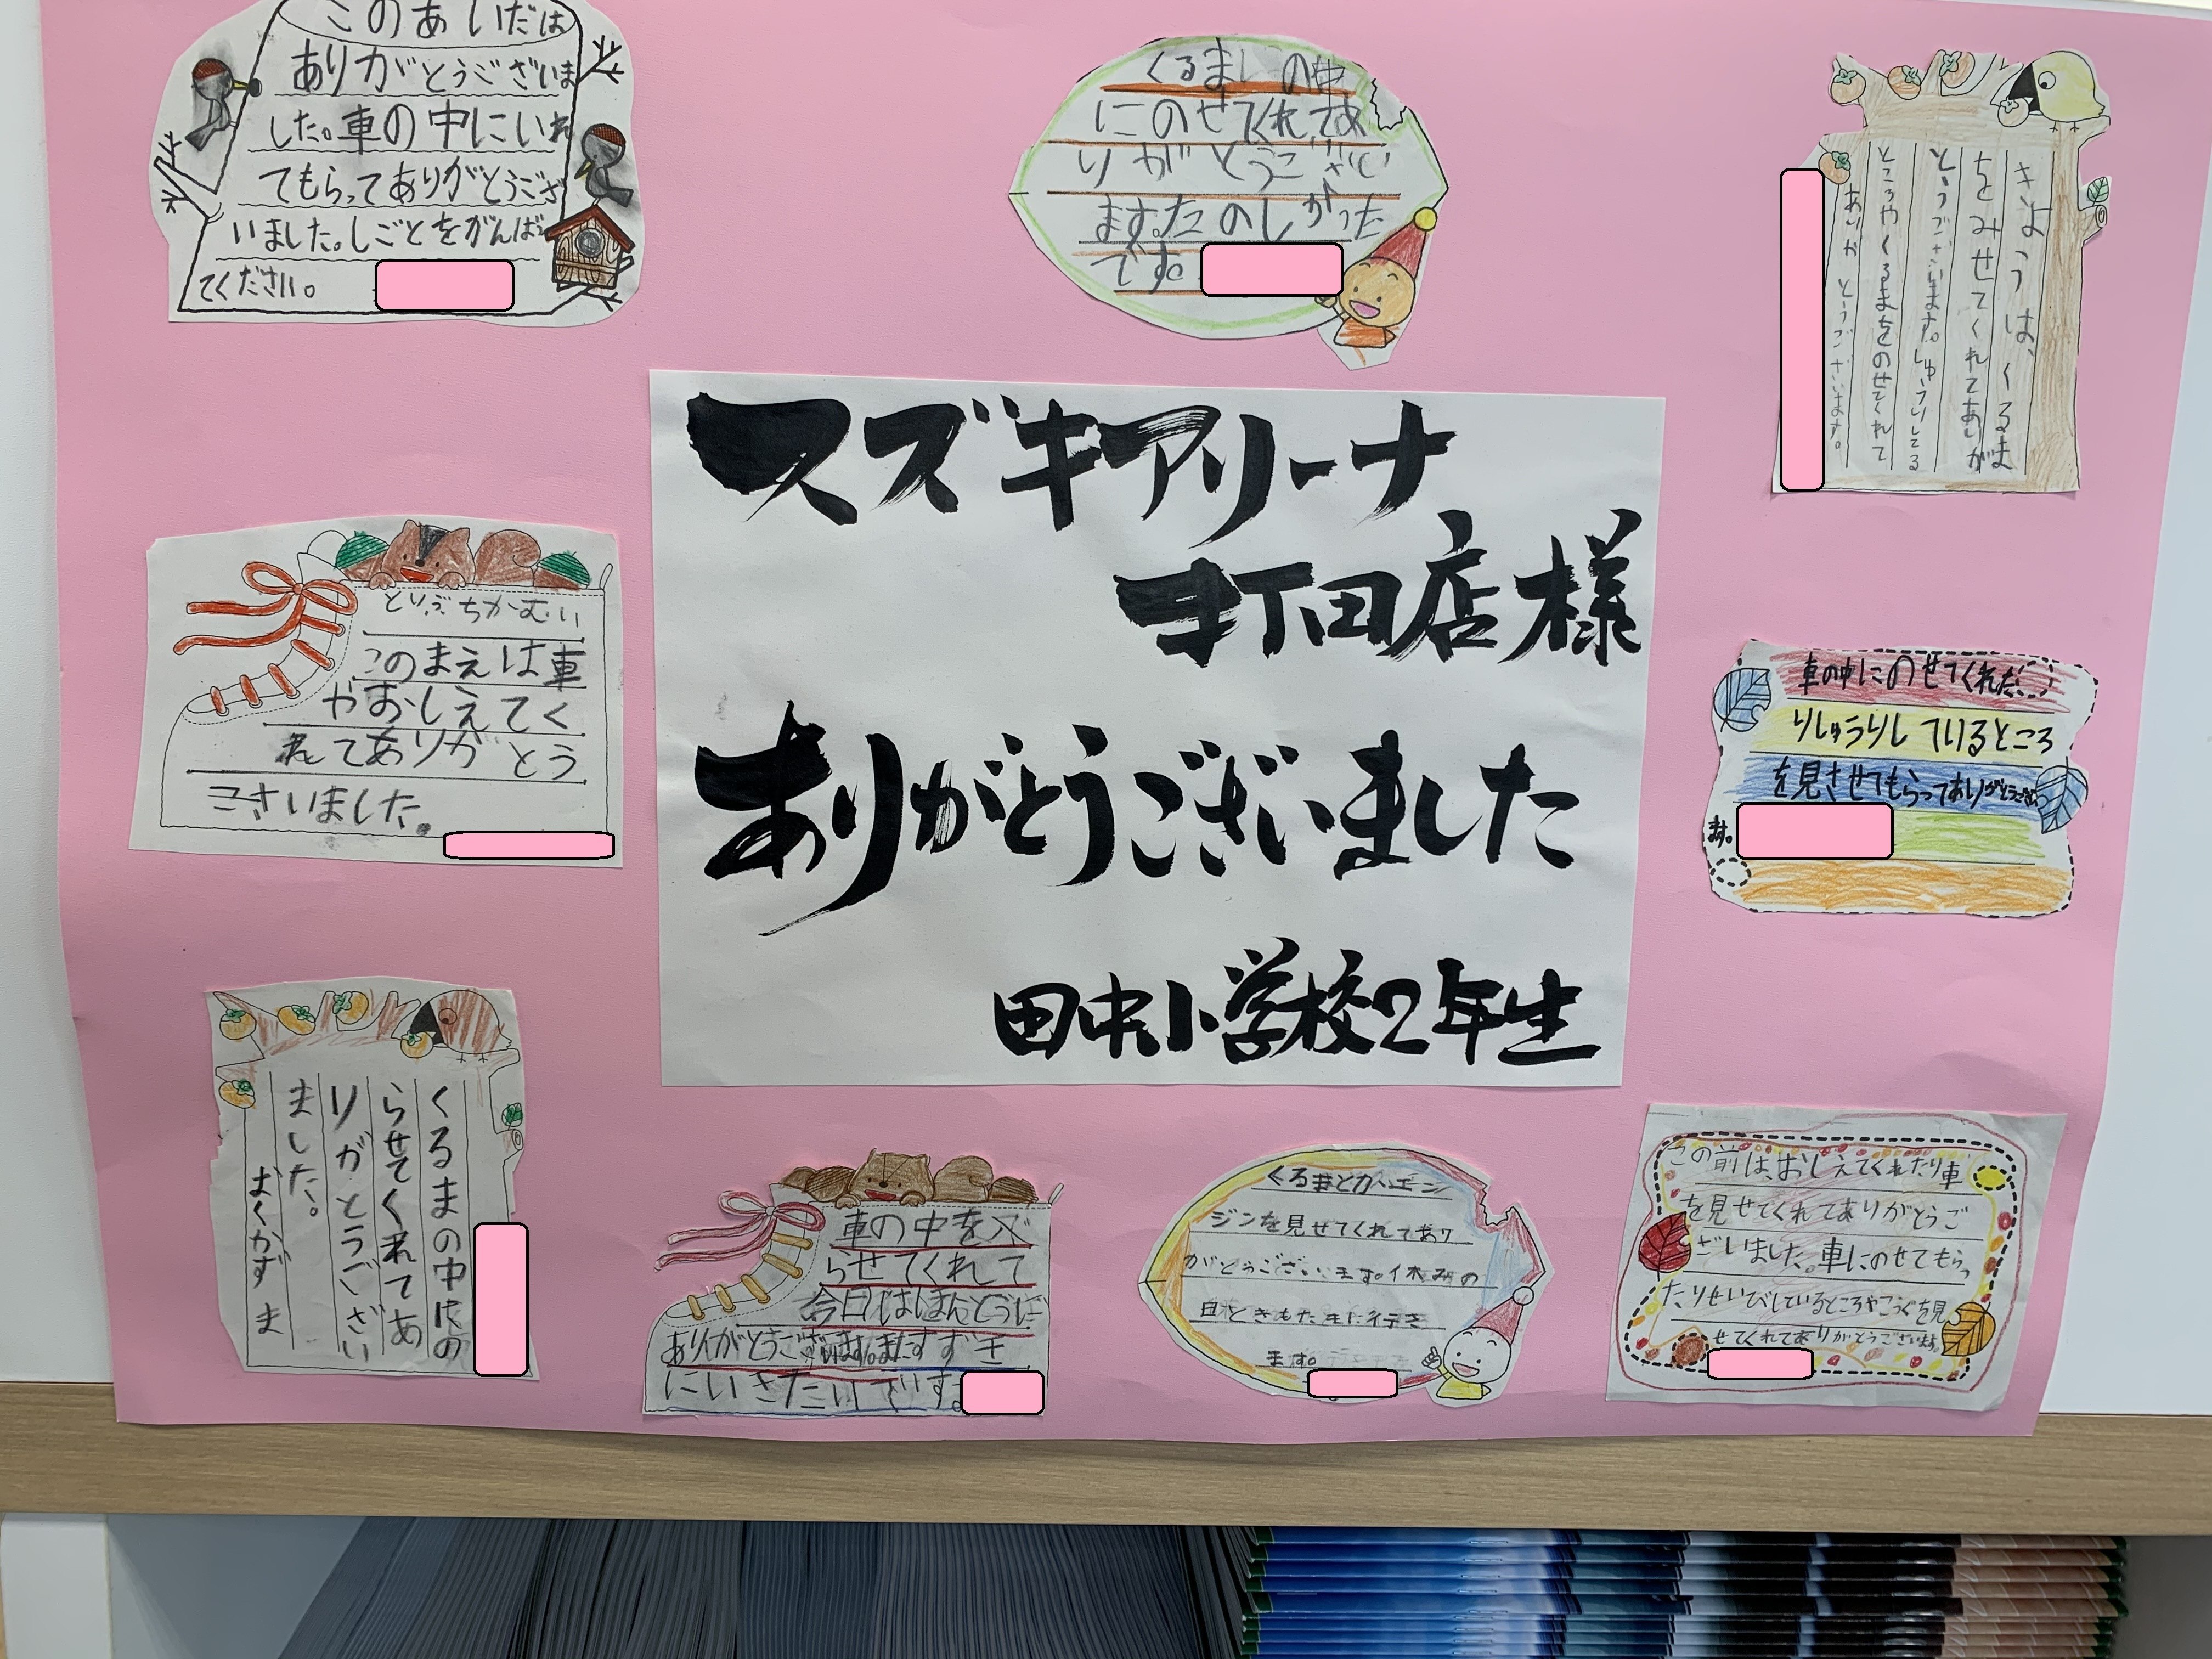 このあいだは
ありがとうございま
した。車の中にいれ
てもらってありがとうござ
いました。しごとをがんばっ
てください。
くるまの中
にのせてくれてあ
りがとうござい
ます。たのしかった
です。
きようは、くるま
をみせてくれてありが
とうございます。しゅうりしてる
ところやくるまをのせてくれて
ありがとうございます。
スズキアリーナ
町田店様
ありがとうございました
田中小学校2年生
このまえは車
やおしえてく
れてありがとう
ございました。
車の中にのせてくれた
りしゅうりしているところ
を見させてもらってありがとうござい
ます。
くるまの中に
らせてくれてあ
りがとうござい
ました。
車の中を入
らせてくれて
今日はほんとうに
ありがとうございます。またすずき
にいきたいです。
ジンを見せてくれてあり
がとうございます。休みの
日ときもたまに行き
ます。
この前は、おしえてくれたり車
を見せてくれてありがとうご
ざいました。車にのせてもらっ
たりせいびしているところやこうぐを見
せてくれてありがとうございます。